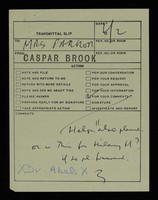 TRANSMITTAL SLIP
DATE
8/2
TO
MRS PARKER
REF. NO. OR ROOM
FROM
CASPAR BROOK
REF. NO. OR ROOM
ACTION
NOTE AND FILE
PER OUR CONVERSATION
NOTE AND RETURN TO ME
PER YOUR REQUEST
RETURN WITH MORE DETAILS
FOR YOUR APPROVAL
NOTE AND SEE ME ABOUT THIS
FOR YOUR INFORMATION
PLEASE ANSWER
FOR YOUR COMMENTS
PREPARE REPLY FOR MY SIGNATURE
SIGNATURE
TAKE APPROPRIATE ACTION
INVESTIGATE AND REPORT
COMMENTS
also please
on a
for
If so
Dr.